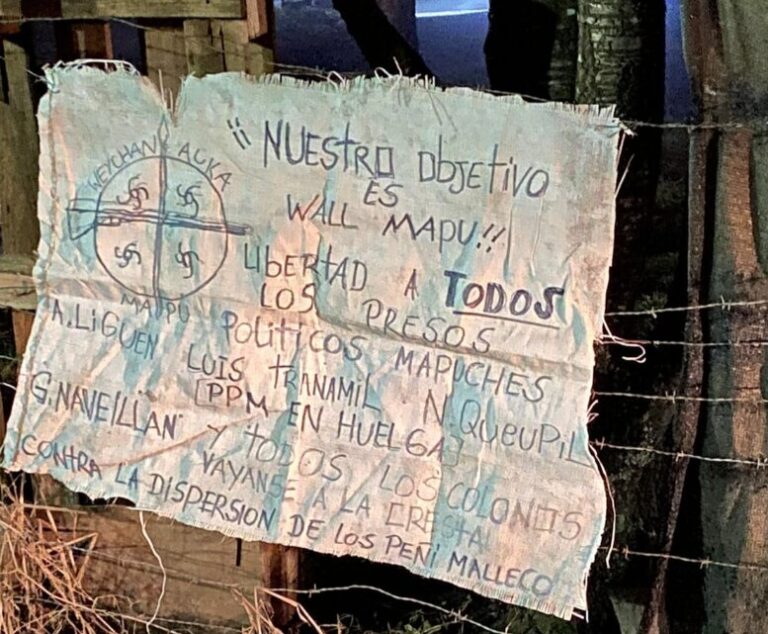 WEYCHAN AUKA
MAPU
¡¡NUESTRO ObJEtIVO
ES
WALL MAPU!!
LIbERtAD A TODOS
LOS PRESOS
POLítICOS MAPUCHES
A. LIGUEN LUIS TRANAMIL N. QUEUPIL
[PPM EN HUELGA]
G. NAVEILLAN Y tODOS LOS COLONOS
VAYANSE A LA CRESTA
¡CONTRA LA DISPERSION DE LOS PEÑI MALLECO